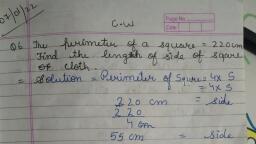 07/01/22
C.W
Page No.
Date
Q6. The perimeter of a square = 220 cm
Find the length of side of sqare
of cloth.
= Solution = Perimeter of Squre = 4x S
= 4x S
220 cm = side
220
4 cm
55 cm = side